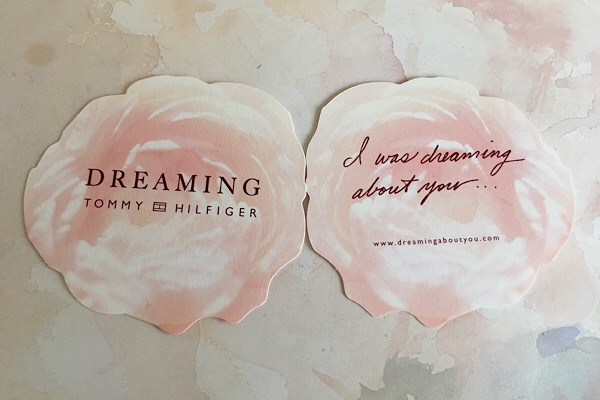 DREAMING
TOMMY HILFIGER
I was dreaming
about you...
www.dreamingaboutyou.com